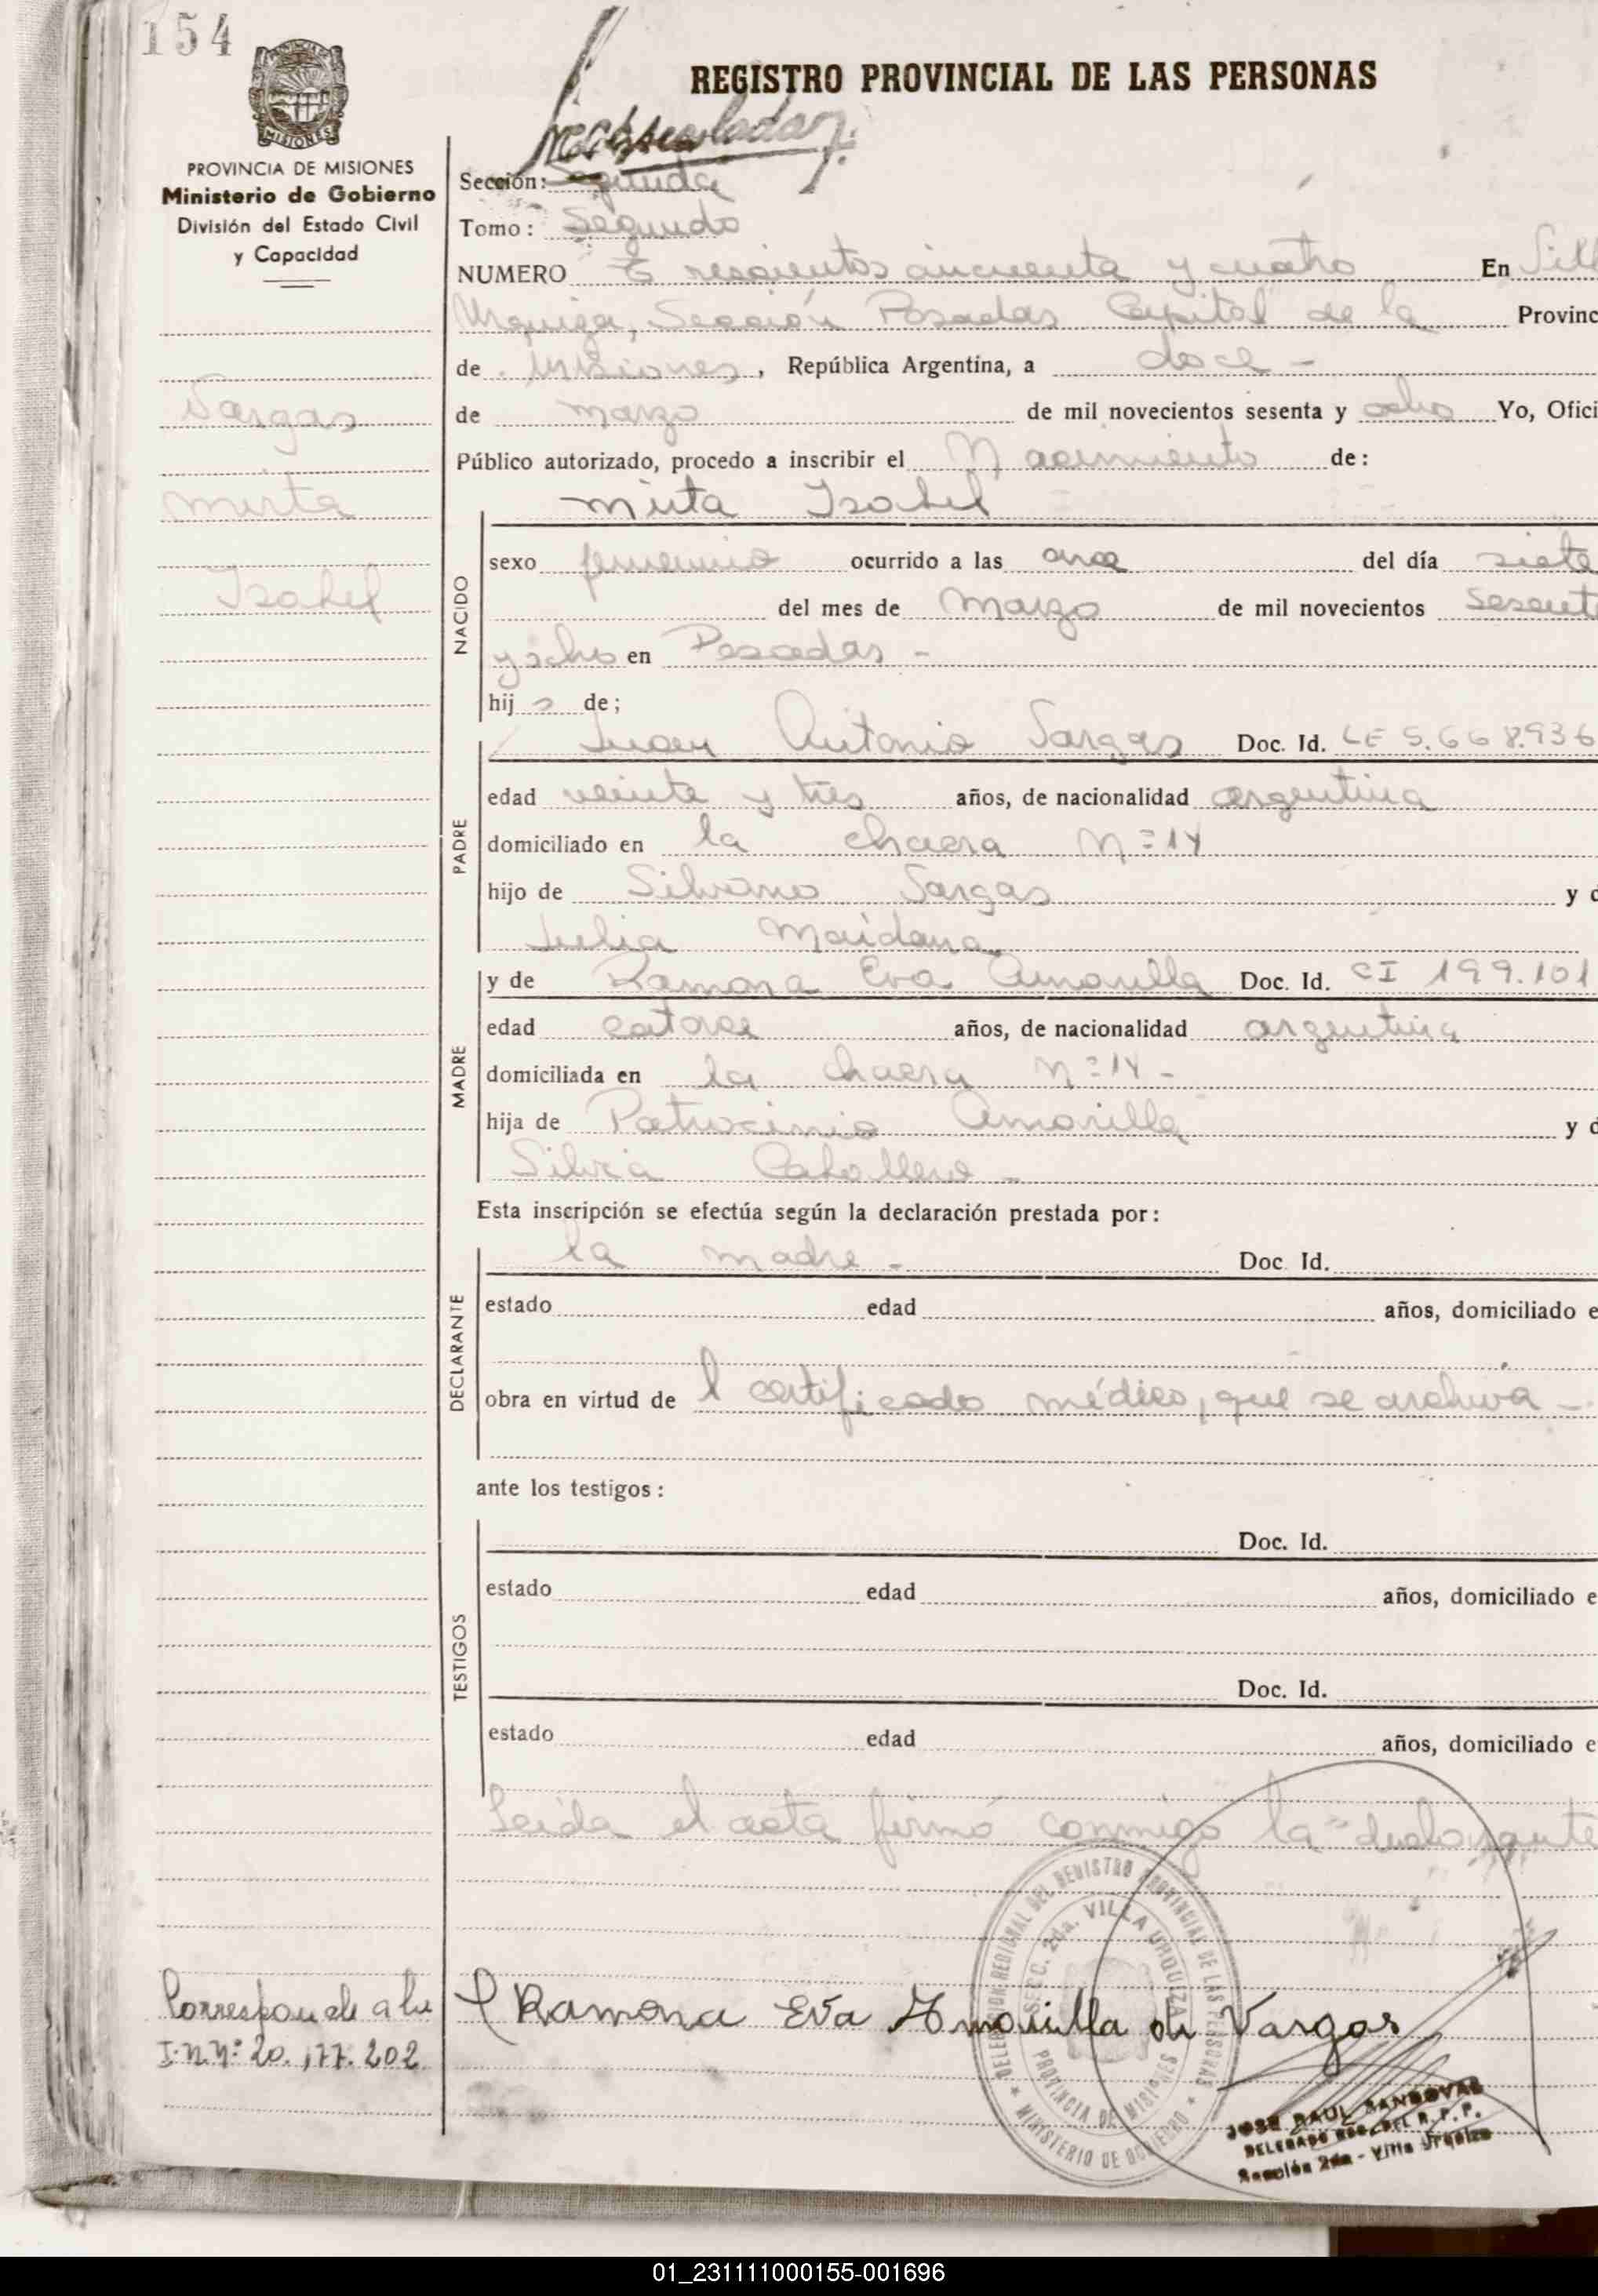 154
REGISTRO PROVINCIAL DE LAS PERSONAS
MISIONES
PROVINCIA DE MISIONES
Ministerio de Gobierno
División del Estado Civil
y Capacidad
Sección: Segunda
Tomo: Segundo
NUMERO Trescientos cincuenta y cuatro En Vill
Urquiza, Sección Posadas Capital de la Provinc
de Misiones, República Argentina, a doce -
de marzo de mil novecientos sesenta y ocho Yo, Ofici
Público autorizado, procedo a inscribir el Nacimiento de:
Vargas
Mirta
Isabel
NACIDO
Mirta Isabel
sexo femenino ocurrido a las once del día siete
del mes de Marzo de mil novecientos sesent
y ocho en Posadas -
hij a de;
PADRE
Juan Antonio Vargas Doc. Id. LE 5.668.936
edad veinte y tres años, de nacionalidad argentina
domiciliado en la chacra Nº 14
hijo de Silvano Vargas y d
Julia Maidana
MADRE
y de Ramona Eva Amarilla Doc. Id. CI 199.101
edad catorce años, de nacionalidad argentina
domiciliada en la chacra Nº 14 -
hija de Patrocinio Amarilla y d
Silvia Caballero -
Esta inscripción se efectúa según la declaración prestada por:
DECLARANTE
la madre - Doc Id.
estado edad años, domiciliado e
obra en virtud de l certificado médico, que se archiva -
ante los testigos:
TESTIGOS
Doc. Id.
estado edad años, domiciliado e
Doc. Id.
estado edad años, domiciliado e
Leída el acta firmó conmigo la declarante
DELEGACION REGIONAL DEL REGISTRO PROVINCIAL DE LAS PERSONAS
SECC. 2da. VILLA URQUIZA
PROVINCIA DE MISIONES
MINISTERIO DE GOBIERNO
Ramona Eva Amarilla de Vargas
Corresponde a la
I.N.Nº 20.177.202
JOSE RAUL SANDOVAL
DELEGADO REG. DEL R. P. P.
Sección 2da - Villa Urquiza
01_231111000155-001696